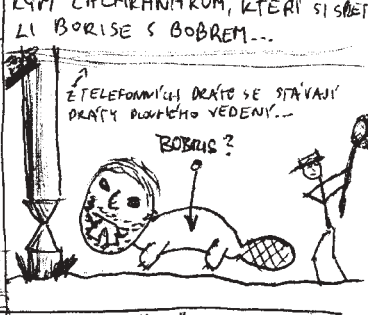 KTEŘÍ SI SPLET
LI BORISE S BOBREM...
Z TELEFONNÍCH DRÁTŮ SE STÁVAJÍ
DRÁTY DLOUHÉHO VEDENÍ...
BOBRIS?